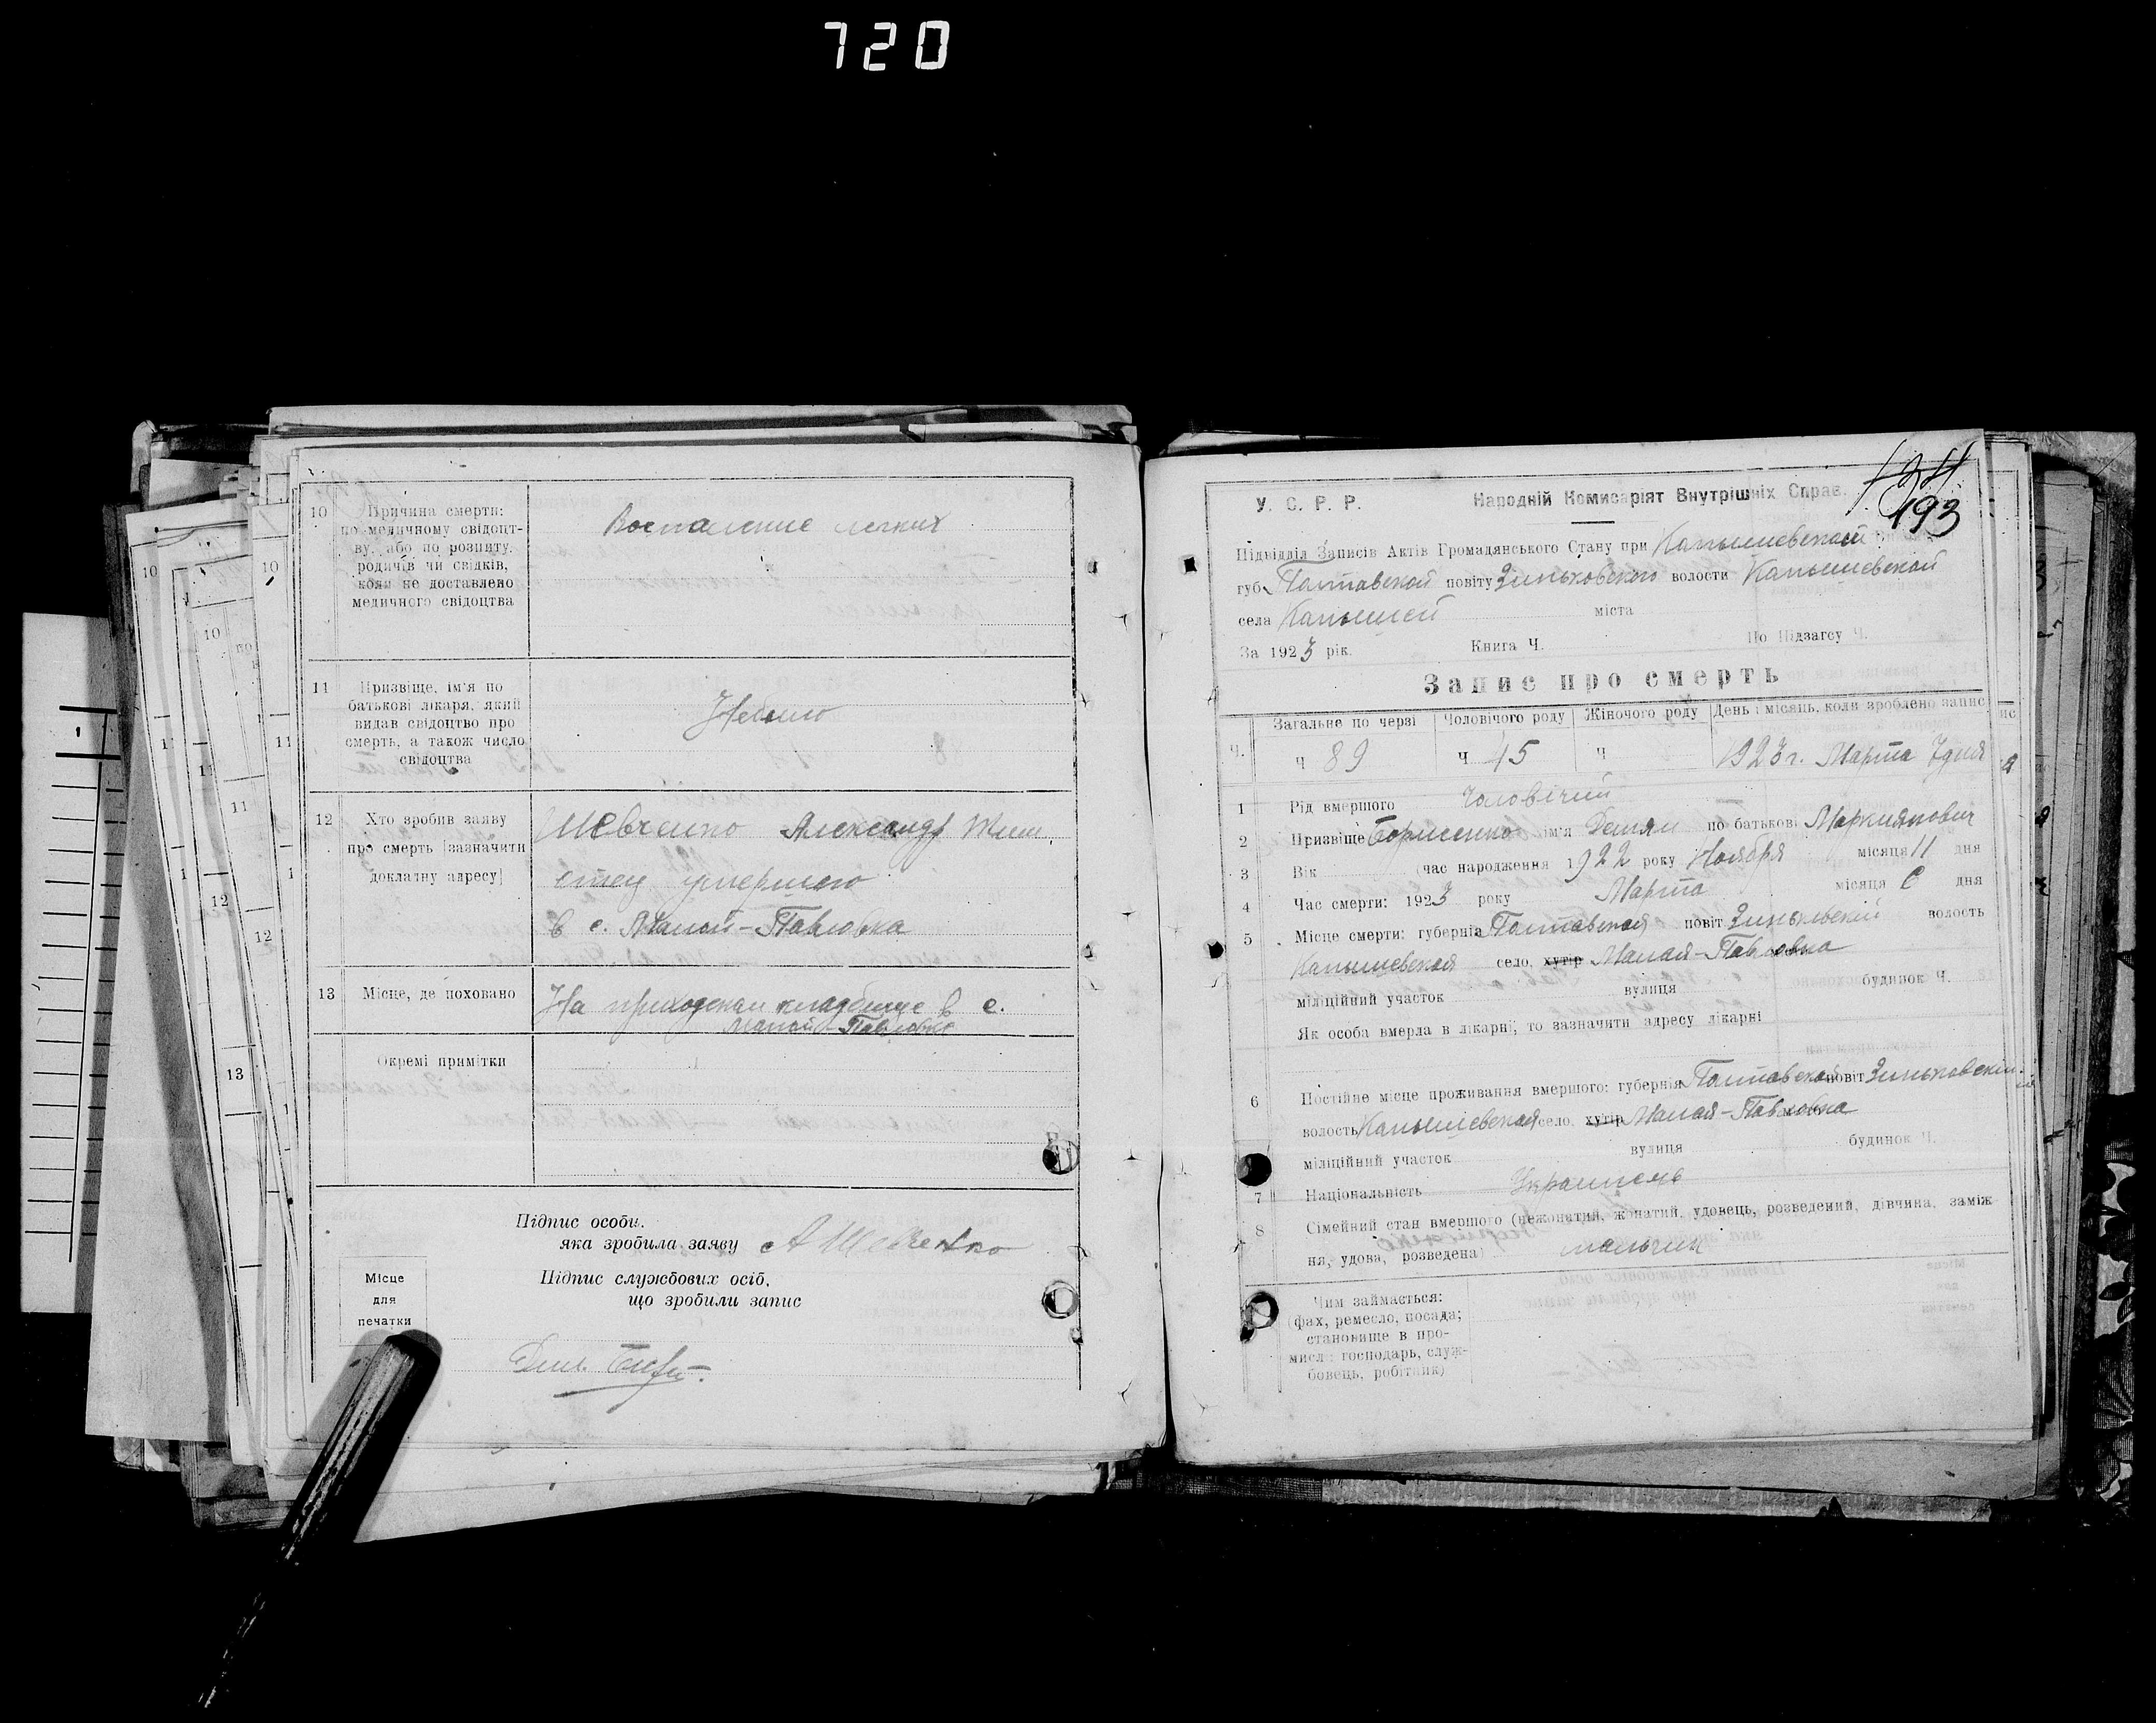 720
10
Причина смерти:
по медичному свідоцт-
ву, або по розпиту
родичів чи свідків,
коли не доставлено
медичного свідоцтва
Воспаление легких
11
Призвіще, ім'я по
батькові лікаря, який
видав свідоцтво про
смерть, а також число
свідоцтва
Небыло
12
Хто зробив заяву
про смерть (зазначити
докладну адресу)
Шевченко Александр Жит.
отец умершего
в с. Малой-Павловка
13
Місце, де поховано
На приходском кладбище в с.
Малой-Павловке
Окремі примітки
Підпис особи,
яка зробила заяву А Шевченко
Підпис службових осіб,
що зробили запис
Місце
для
печатки
У. С. Р. Р.
Народній Комисаріят Внутрішніх Справ.
193
Підвідділ Записів Актів Громадянського Стану при Капышевской
губ. Полтавской повіту Зиньковского волости Капышевской
села Капышей міста
За 1923 рік. Книга Ч. По Підзагсу Ч.
Запис про смерть
Загальне по черзі Чоловічого роду Жіночого роду День і місяць, коли зроблено запис
Ч. Ч 89 Ч 45 Ч 1923 г. Марта 7 дня
1 Рід вмершого Чоловічий
2 Призвіще Борисенко ім'я Демян по батькові Маркиянович
3 Вік час народження 1922 року Ноября місяця 11 дня
4 Час смерти: 1923 року Марта місяця 6 дня
5 Місце смерти: губернія Полтавская повіт Зиньковский волость
Капышевская село, хутір Малая-Павловка
міліційний участок вулиця будинок Ч.
Як особа вмерла в лікарні, то зазначити адресу лікарні
6 Постійне місце проживання вмершого: губернія Полтавская повіт Зиньковский
волость Капышевская село, хутір Малая-Павловка
міліційний участок вулиця будинок Ч.
7 Національність Украинець
8 Сімейний стан вмершого (нежонатий, жонатий, удовець, розведений, дівчина, заміж
ня, удова, розведена) мальчик
Чим займається:
(фах, ремесло, посада;
становище в про-
мислі: господарь, служ-
бовець, робітник)